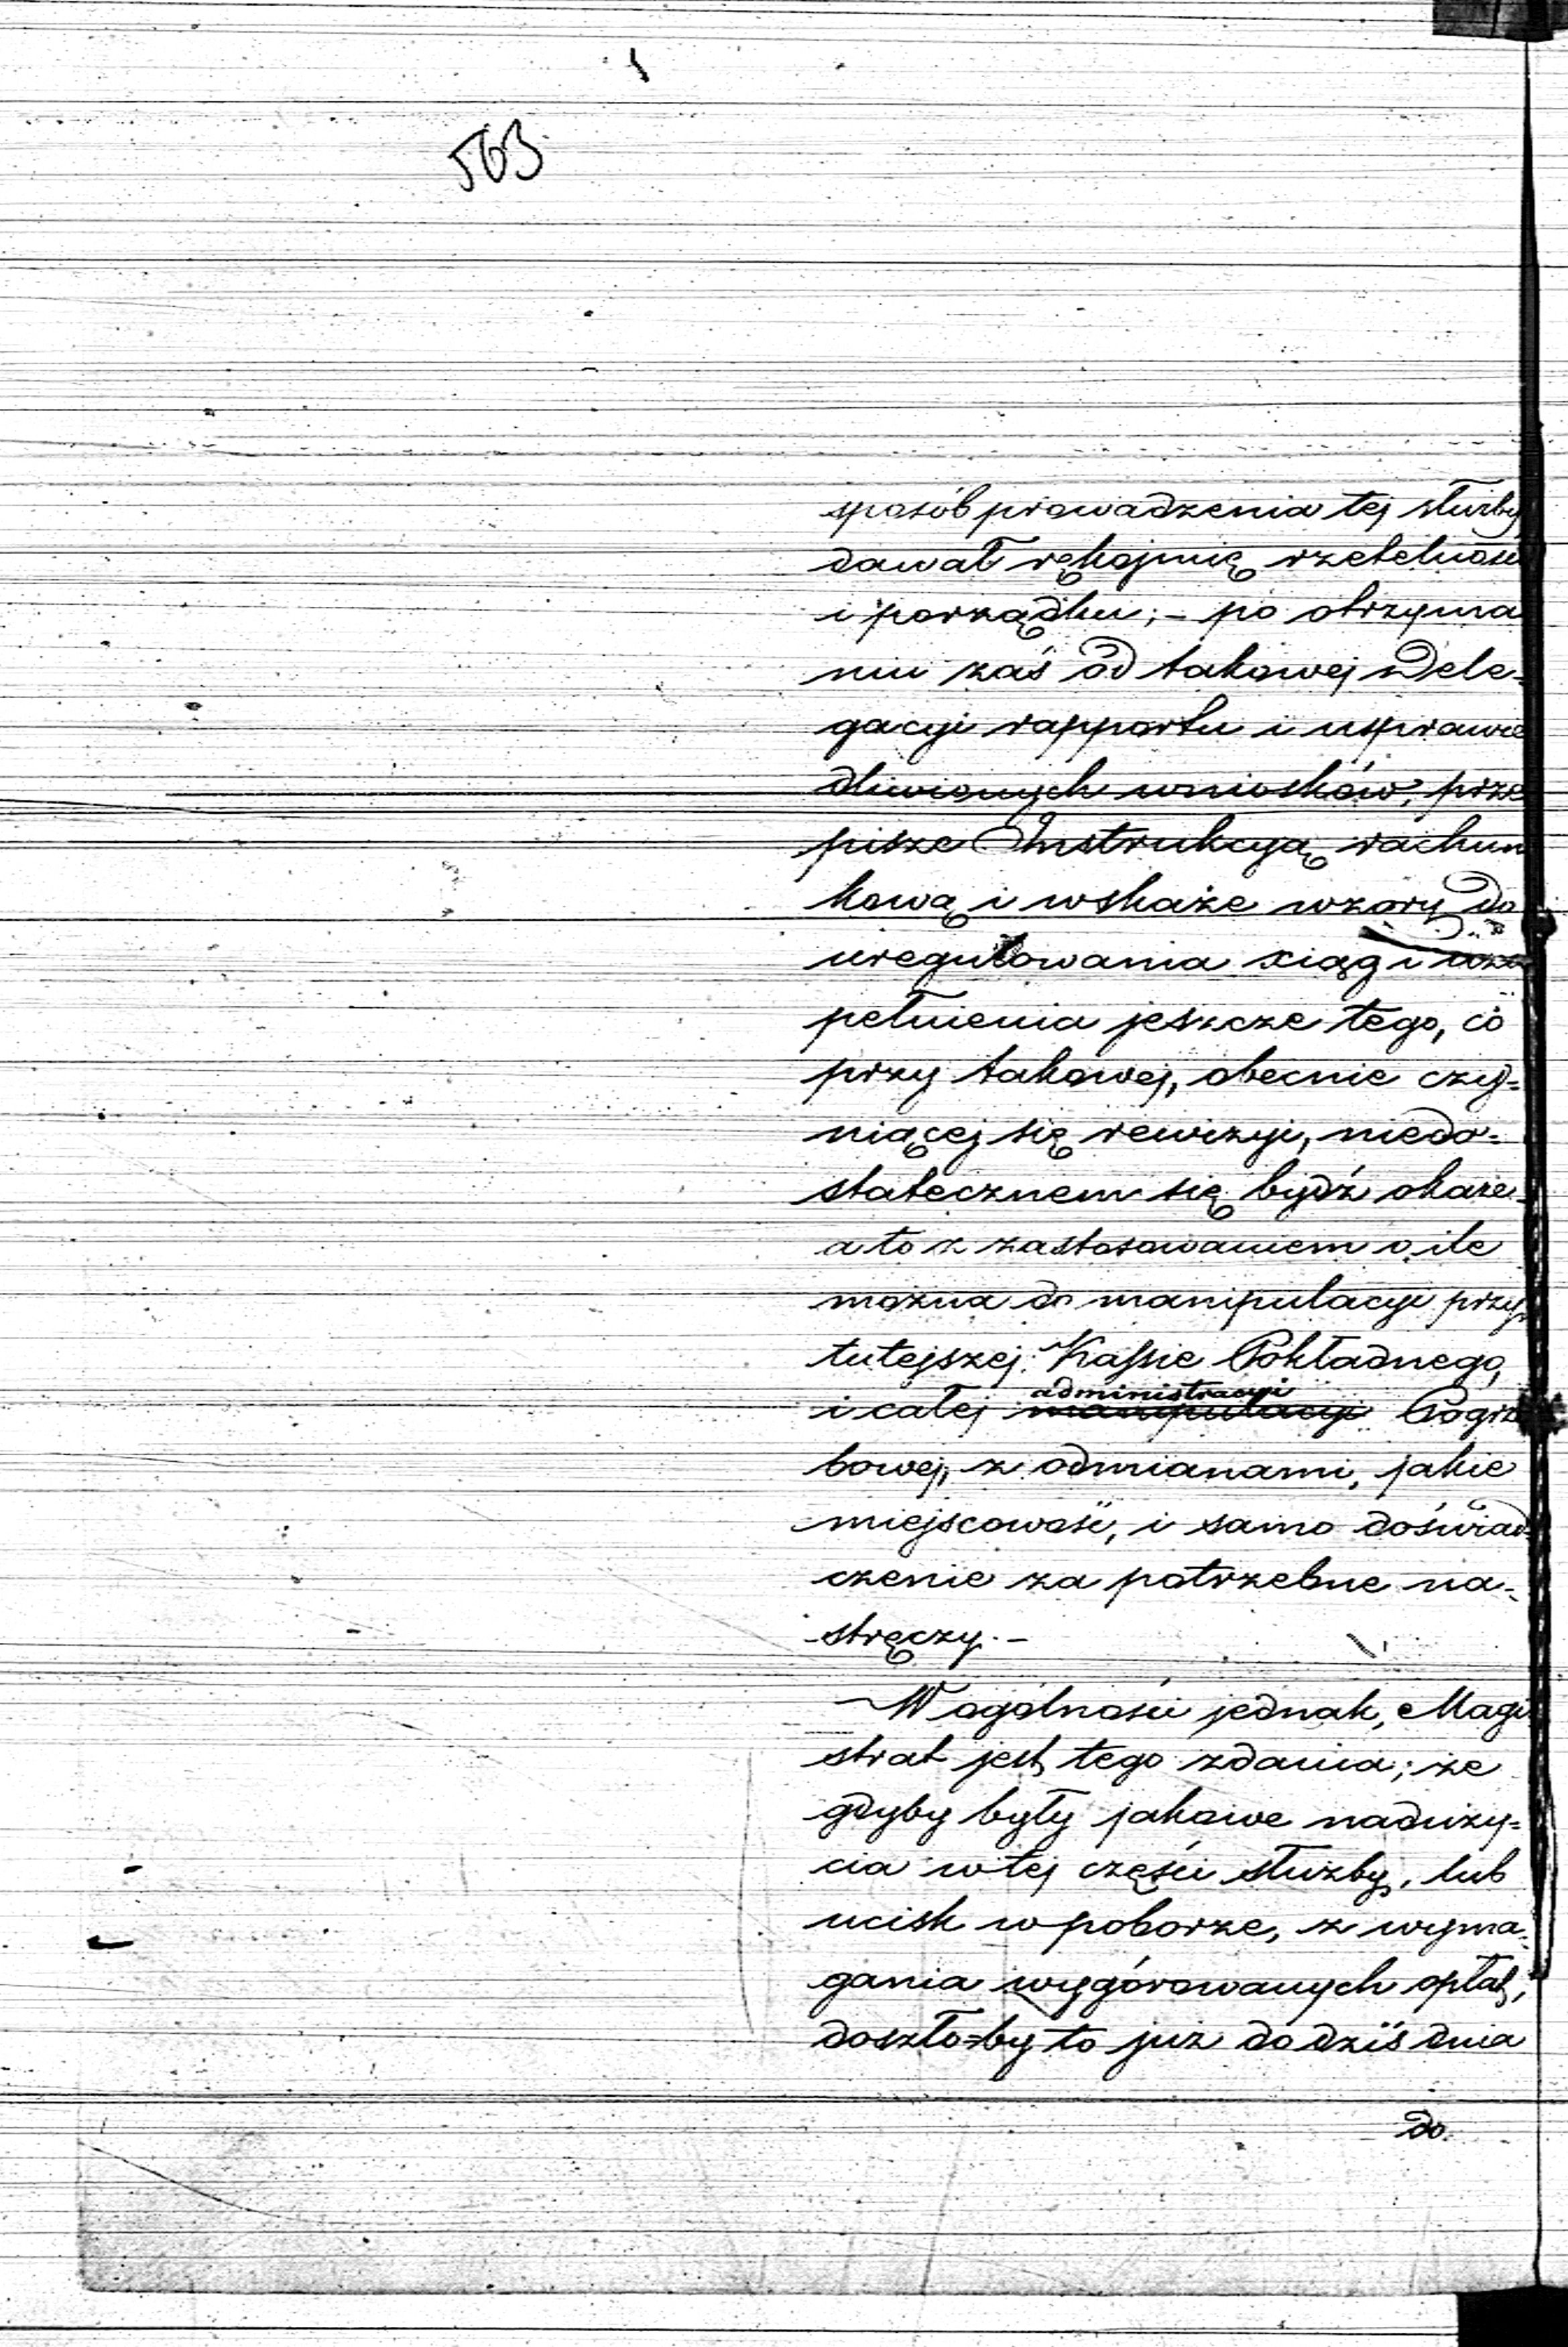 563
sposób prowadzenia tej służby
dawał rękojmię rzetelności
i porządku; – po otrzyma
niu zaś od takowej Dele-
gacyi rapportu i usprawie
dliwionych wniosków, prze
pisze Instrukcyą rachun
kową i wskaże wzory do
uregulowania xiąg i
pełnienia jeszcze tego, co
przy takowej, obecnie czy-
niącej się rewizyi, niedo-
statecznem się bydź okaże
a to z zastosowaniem o ile
można do manipulacyi przy
tutejszej Kassie Pokładnego,
administracyi
i całej manipulacyi Pogrze
bowej, z odmianami, jakie
miejscowość, i samo doświad-
czenie za potrzebne na-
stręczy. –
W ogólności jednak, Magi
strat jest tego zdania; że
gdyby były jakowe naduży-
cia w tej części służby, lub
ucisk w poborze, z wyma-
gania wygórowanych opłat,
doszło-by to już do dziś dnia
do